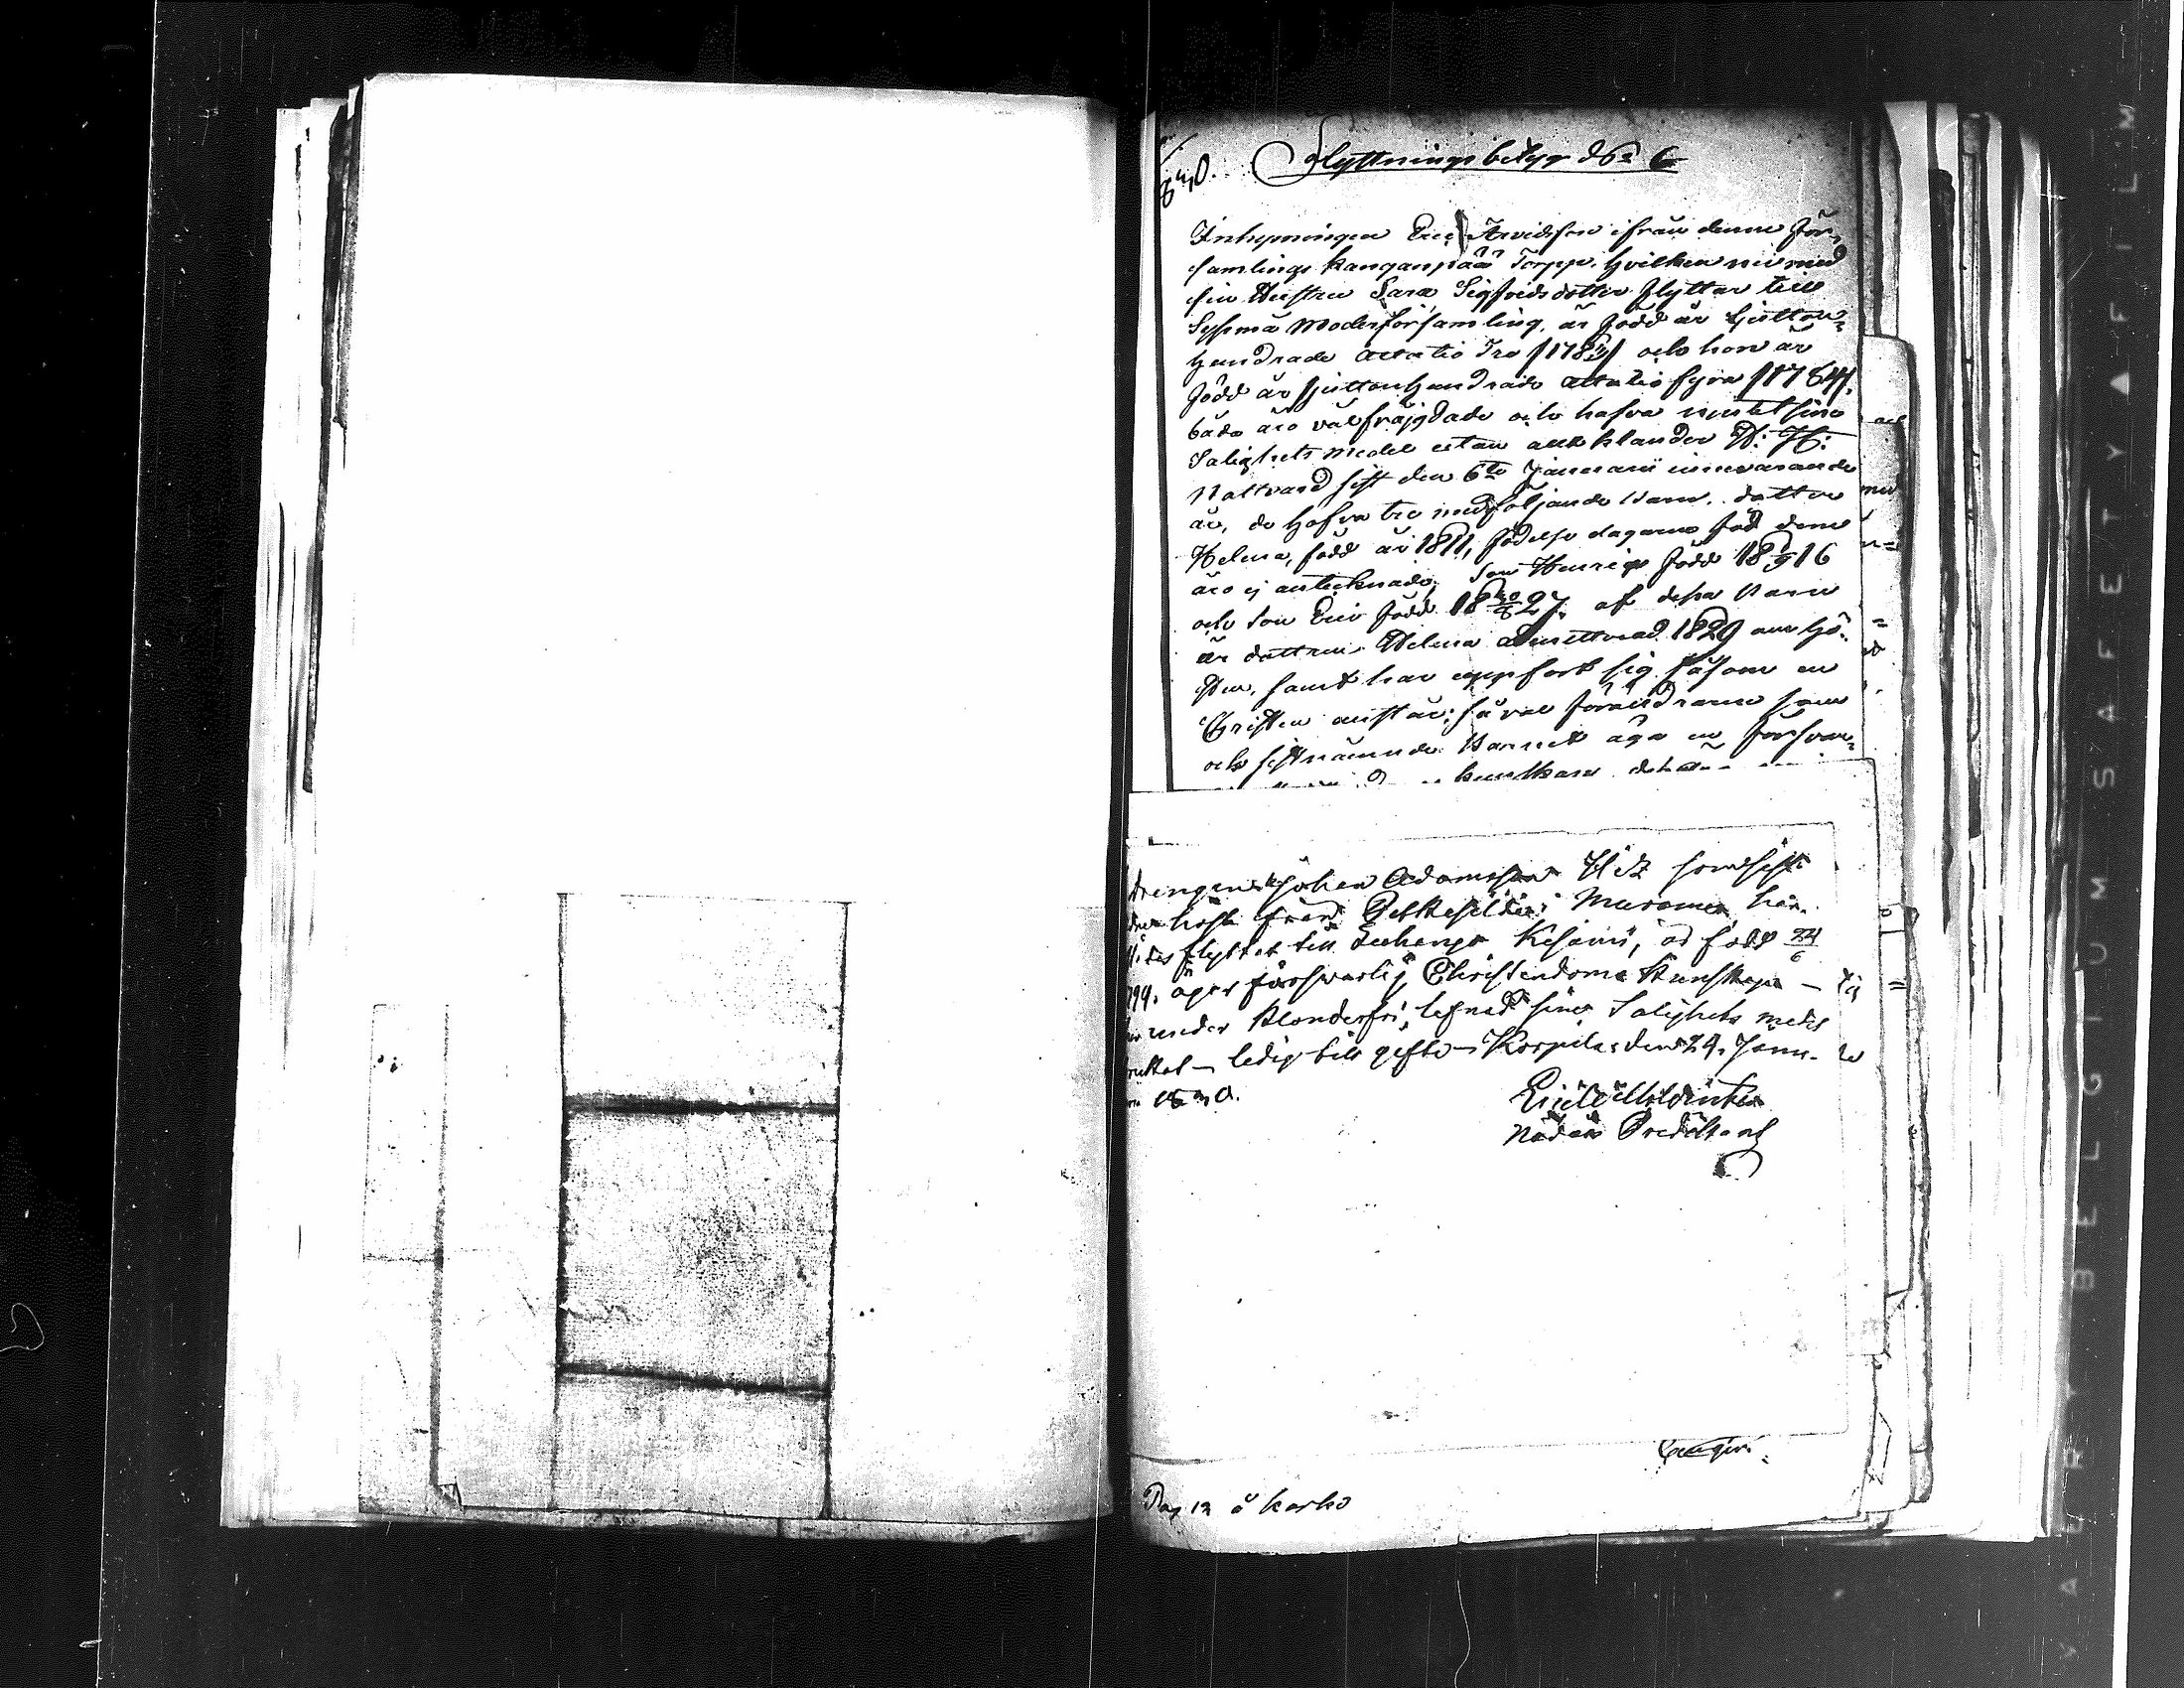 Flyttningsbetyg No 6
Inhysningen Eric Arvidsson ifrån denne För-
samlings Kanganpää Torpp. hvilken nu med
sin Hustru Sara Sigfridsdotter flyttar till
Sysmä Moderförsamling, är född år sjutton-
hundrade åttatio Tre /1783/ och hon är
född år sjuttonhundrade åttatio fyra /1784/.
båda äro välfräjgdade och hafva nyttjat sina
Salighets medel utan allt klander H: H:
Nattvard sist den 6te Januarii innevarande
år, de hafva tre medföljande Barn. dottren
Helena, född år 1811, födelse dagarne
äro ej antecknade, Son Henric född 1816
och Son Eric född 1827. af dessa Barn
är dottren Helena admitterad 1829 om hö-
sten, samt har uppfört sig såsom en
Christen anstår; så väl föräldrarne som
och sistnämnde Barnet äga en försvar-
kundskap
drengen Johan Adamsson som sist
höst från Muramen här-
flyttat till är född 24/6
äger försvarlig Christendoms Kunskap
under klanderfri lefnad sine Salighets medel
ledig till gifte - Korpilax den 24. Janu-
Pag 12 å karho